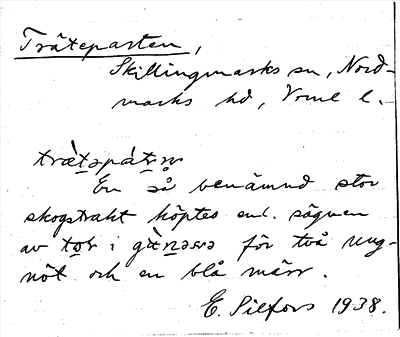 Träteparten,
Skillingmarks sn, Nord-
marks hd, Vrml l.
træ̀təpáʈɳ
En så benämnd stor
skogstrakt köptes enl. sägnen
av i för två ung-
nöt och en blå märr.
E. Silfors 1938.